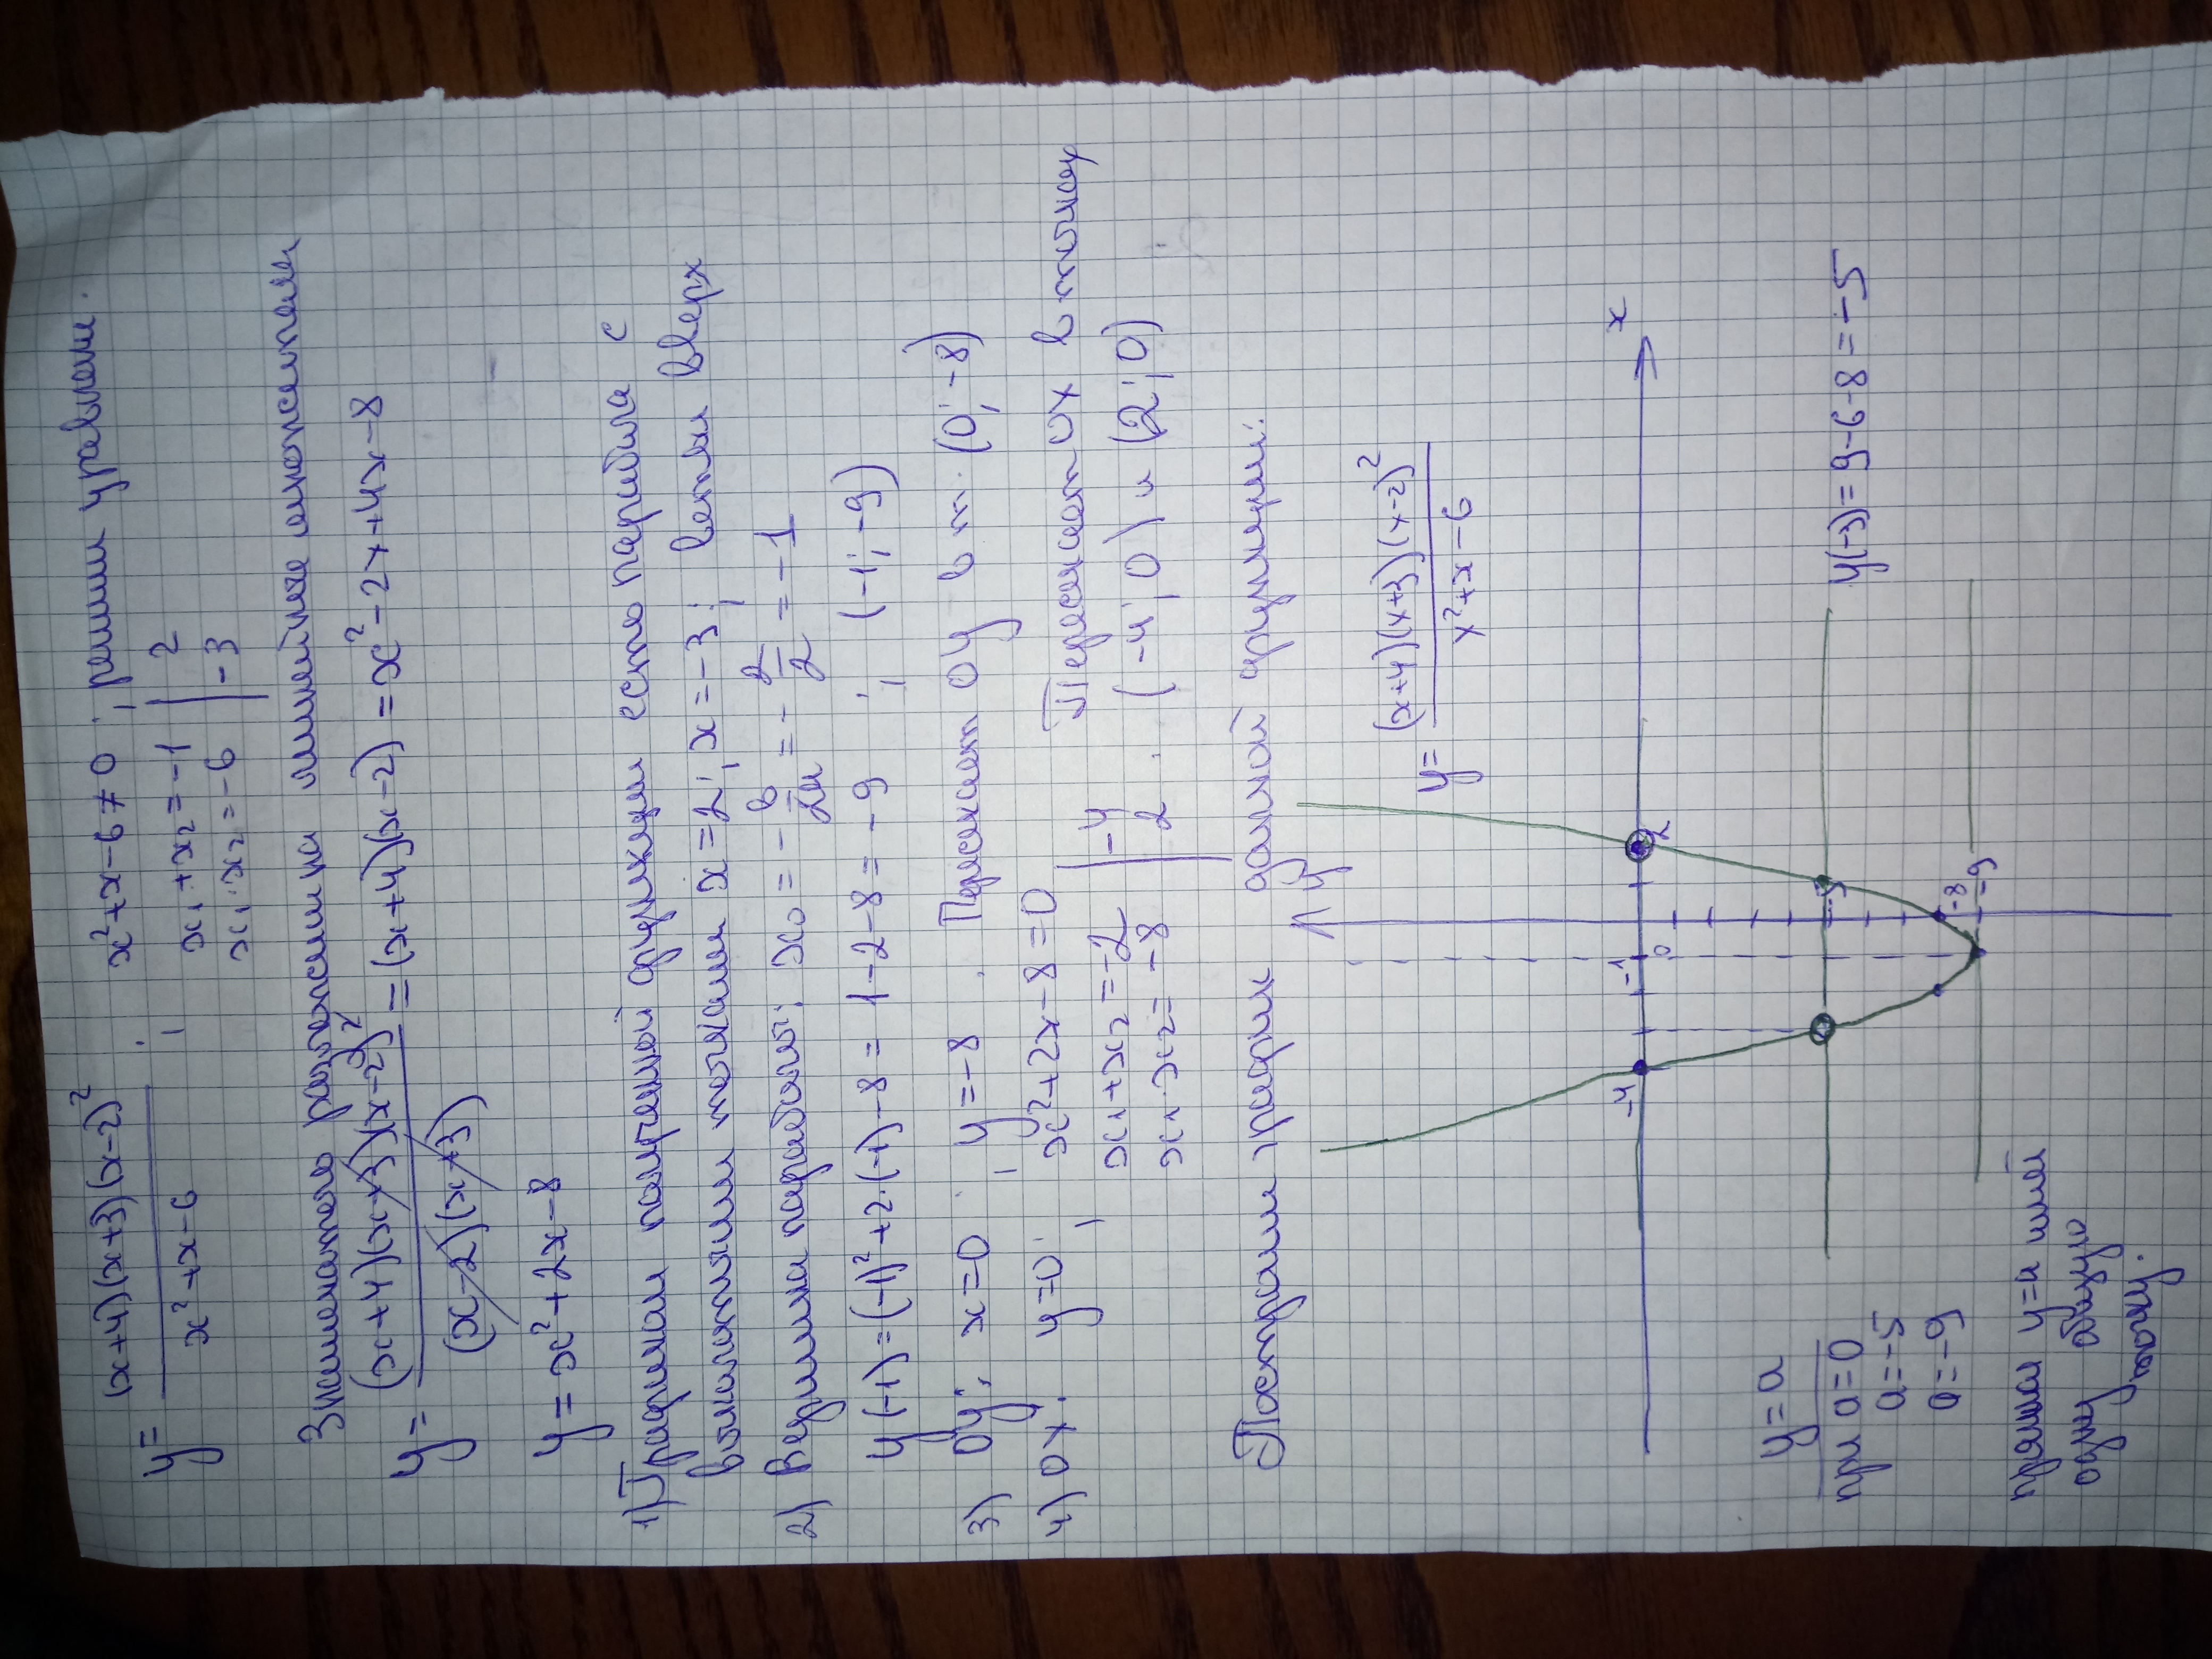 y= (x+4)(x+3)(x-2)² / x²+x-6 ; x²+x-6≠0 ; решим уравнение.
x₁+x₂=-1 | 2
x₁·x₂=-6 | -3
Знаменатель разложим на линейные множители
y= (x+4)(x+3)(x-2)² / (x-2)(x+3) = (x+4)(x-2) = x²-2x+4x-8
y=x²+2x-8
1) Графиком полученной функции есть парабола с
выколотыми точками x=2; x=-3; ветви вверх
2) Вершина параболы: x₀=-в/2а=-2/2=-1
y(-1)=(-1)²+2·(-1)-8=1-2-8=-9 ; (-1;-9)
3) Oy: x=0 ; y=-8 . Пересекает Oy в т. (0;-8)
4) Ox. y=0 ; x²+2x-8=0 Пересекает Ox в точках
x₁+x₂=-2 | -4 (-4;0) и (2;0)
x₁·x₂=-8 | 2 .
Построим график данной функции:
y
y= (x+4)(x+3)(x-2)² / x²+x-6
-4 -1 0 2 x
y=a
при a=0
a=-5
a=-9
-5 y(-3)=9-6-8=-5
-8
-9
прямая y=a имеет
одну общую
точку.